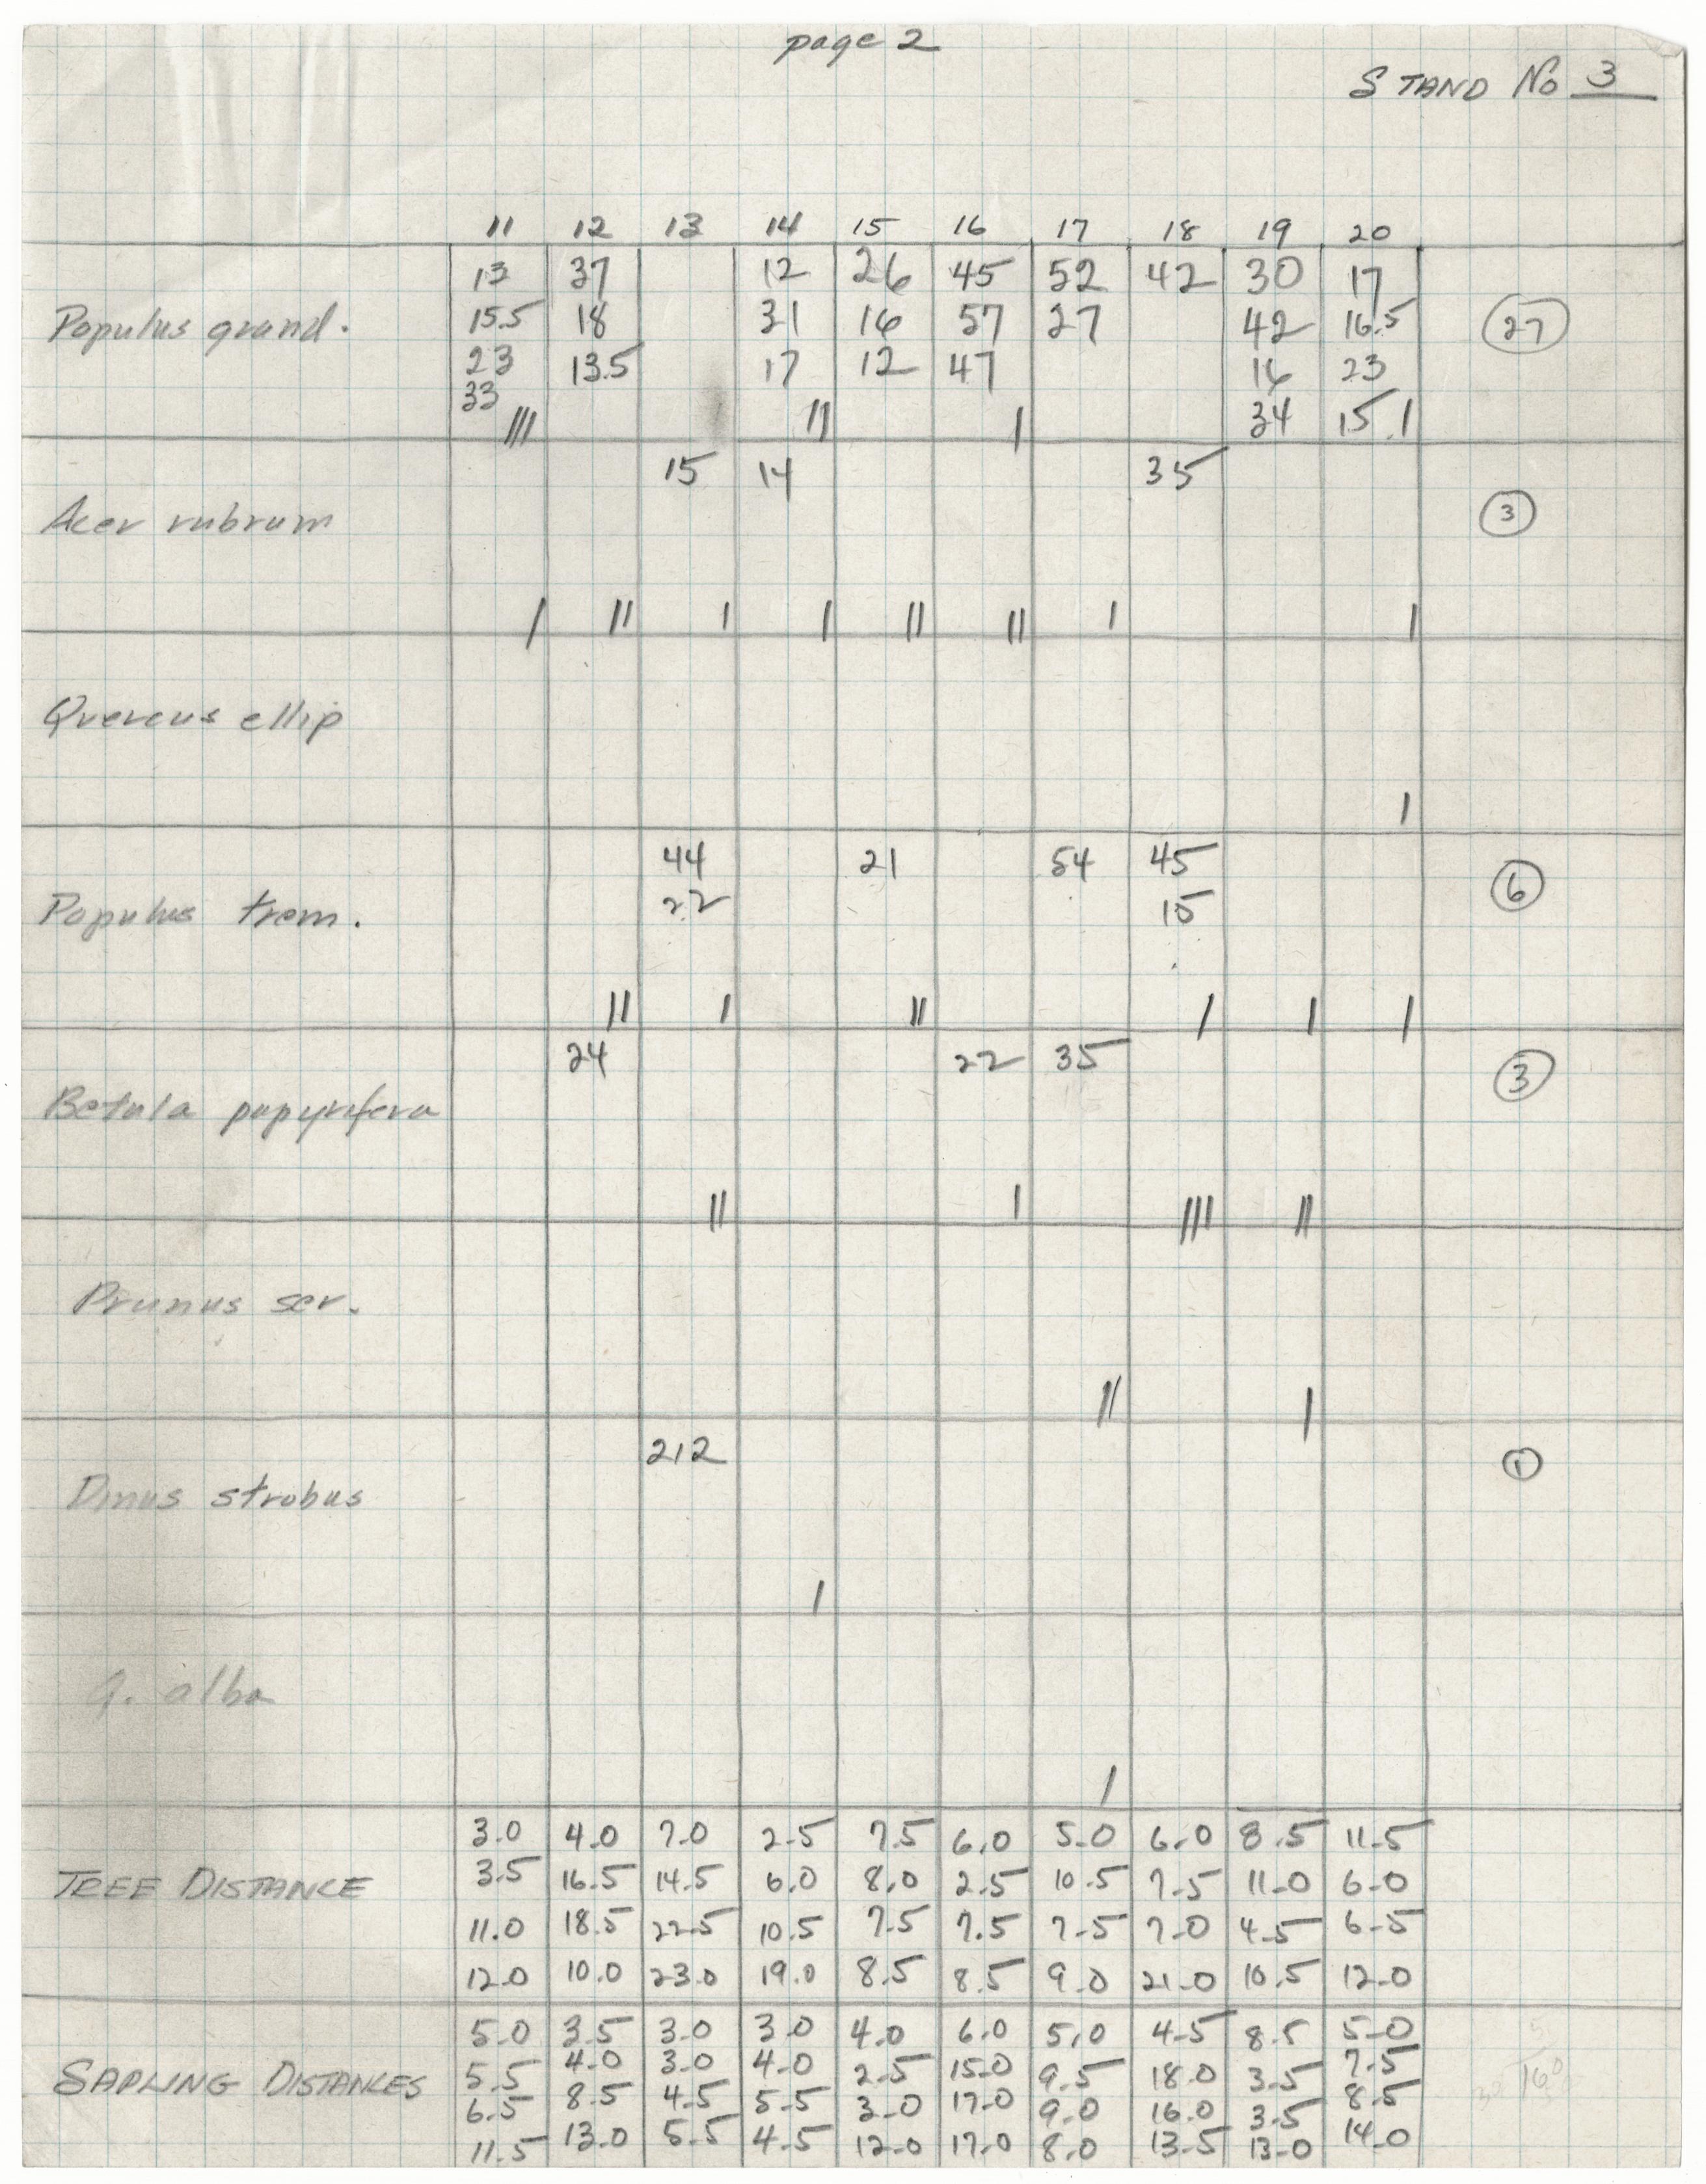 page 2
STAND No 3
11 12 13 14 15 16 17 18 19 20
13 37 12 26 45 52 42 30 17
Populus grand. 15.5 18 31 16 57 27 42 16.5 27
23 13.5 17 12 47 16 23
33 34 15
||| || | |
15 14 35
Acer rubrum 3
| || | | || || | |
Quercus ellip
|
44 21 54 45
22 15
Populus trem. 6
|| | || | | |
24 22 35
Betula papyrifera 3
|| | |||| ||
Prunus ser.
|| |
212
Pinus strobus 1
|
Q. alba
|
3.0 4.0 7.0 2.5 7.5 6.0 5.0 6.0 8.5 11.5
TREE DISTANCE 3.5 16.5 14.5 6.0 8.0 2.5 10.5 7.5 11.0 6.0
11.0 18.5 22.5 10.5 7.5 7.5 7.5 7.0 4.5 6.5
12.0 10.0 23.0 19.0 8.5 8.5 9.0 21.0 10.5 12.0
5.0 3.5 3.0 3.0 4.0 6.0 5.0 4.5 8.5 5.0
SAPLING DISTANCES 5.5 4.0 3.0 4.0 2.5 15.0 9.5 18.0 3.5 7.5
6.5 8.5 4.5 5.5 3.0 17.0 9.0 16.0 3.5 8.5
11.5 13.0 5.5 4.5 12.0 17.0 8.0 13.5 13.0 14.0